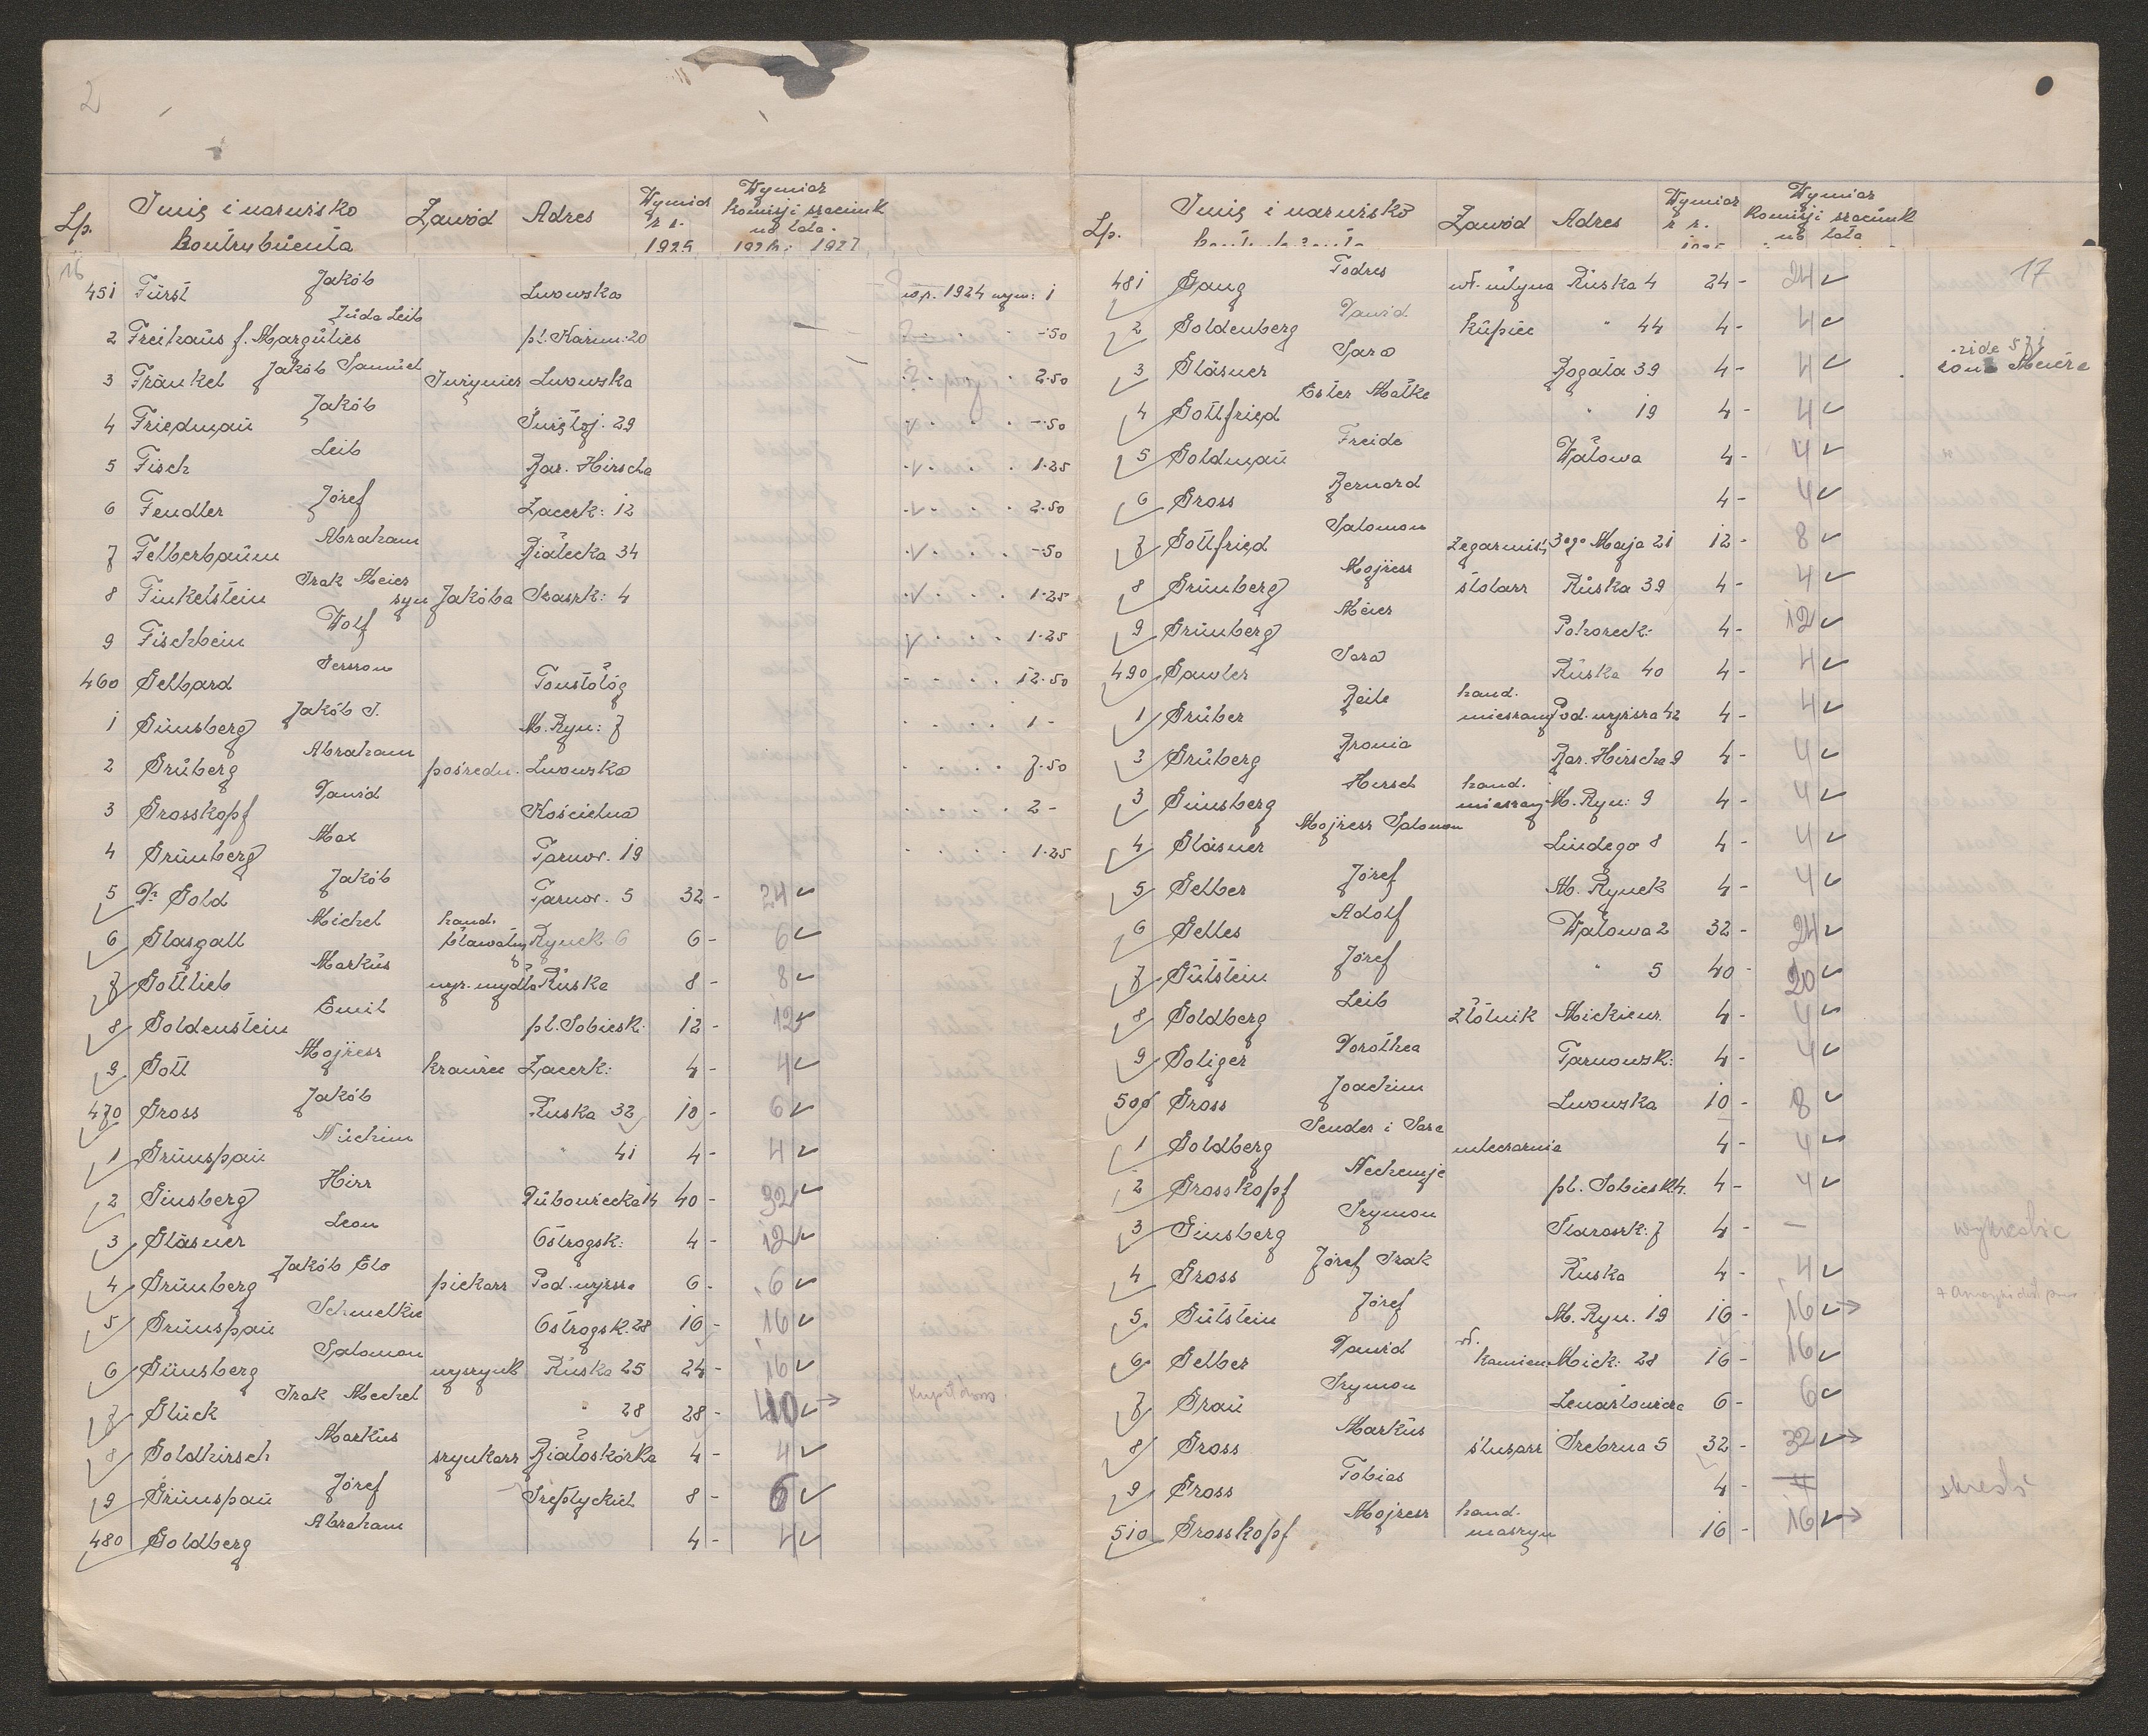 2
Lp. Imię i nazwisko kontrybuenta Zawód Adres Wymiar z r. 1925 Wymiar Komisji szacunk na lata 1926 i 1927
16
451 Fürst Jakób Lwowska wp. 1924 wym: 1
2 Freihaus f. Margulies Juda Leib pl. Kazim: 20 -·50
3 Fränkel Jakób Samuel Inżynier Lwowska 2·50
4 Friedman Jakób Świętoj. 29 -·50
5 Fisch Leib Bar. Hirscha 1·25
6 Fendler Józef Zacerk: 12 2·50
7 Felberbaum Abraham Białecka 34 -·50
8 Finkelstein Izak Meier syn Jakóba Szaszk: 4 1·25
9 Fischbein Wolf 1·25
460 Gelbard Gerszon Toustoług 12·50
1 Günsberg Jakób I. M. Ryn: 7 1 -
2 Gruberg Abraham pośredn. Lwowska 7·50
3 Grosskopf Dawid Kościelna 2 -
4 Grünberg Max Tarnow. 19 1·25
5 Dr Gold Jakób Tarnow. 5 32 - 24
6 Glasgall Michel hand. bławatny Rynek 6 6 - 6
7 Gottlieb Markus wyr. mydła Ruska 8 - 8
8 Goldenstein Emil pl. Sobiesk: 12 - 12
9 Gott Mojżesz krawiec Zacerk: 4 - 4
470 Gross Jakób Ruska 32 10 - 6
1 Grünspan Nuchim " 41 4 - 4
2 Ginsberg Hirz Dubowiecka 14 40 - 32
3 Gläsner Leon Ostrogsk: 4 - 12
4 Grünberg Jakób Elo piekarz Pod. wyższa 6 - 6
5 Grünspan Schmelkie Ostrogsk. 28 16 - 16
6 Günsberg Salomon wyszynk Ruska 25 24 - 16
7 Glück Izak Mechel " 28 28 - 40 →
8 Goldhirsch Markus szynkarz Białoskórka 4 - 4
9 Grünspan Józef Szeptyckich 8 - 6
480 Goldberg Abraham 4 - 4
Lp. Imię i nazwisko Zawód Adres Wymiar z r. Wymiar Komisji szacunk na lata
17
481 Gang Todres wł. młyna Ruska 4 24 - 24
2 Goldenberg Dawid kupiec " 44 4 - 4
3 Gläsner Sara Bogata 39 4 - 4 vide 571 żona Meiera
4 Gottfried Ester Malke " 19 4 - 4
5 Goldman Freide Wałowa 4 - 4
6 Gross Bernard 4 - 4
7 Gottfried Salomon zegarmist. 3ego Maja 21 12 - 8
8 Grünberg Mojżesz stolarz Ruska 39 4 - 4
9 Grünberg Meier Pohoreck: 4 - 12
490 Gawler Sara Ruska 40 4 - 4
1 Gruber Beile hand. mieszany Pod. wyższa 42 4 - 4
3 Gruberg Bronia Bar. Hirscha 9 4 - 4
3 Ginsberg Hersch hand. mieszany M. Ryn: 9 4 - 4
4 Gläsner Mojżesz Salomon Lindego 8 4 - 4
5 Gelber Józef M. Rynek 4 - 4
6 Gelles Adolf Wałowa 2 32 - 24
7 Gutstein Józef " 5 40 - 20
8 Goldberg Leib złotnik Mickiew. 4 - 4
9 Goliger Dorothea Tarnowsk: 4 - 4
500 Gross Joachim Lwowska 10 - 8
1 Goldberg Sender i Sara mleczarnia 4 - 4
2 Grosskopf Nechemje pl. Sobiesk. 4. 4 - 4
3 Ginsberg Szymon Staroszk: 7 4 - — wykreślić
4 Gross Józef Izak Ruska 4 - 4
5 Gutstein Józef M. Ryn. 19 16 - 16 →
6 Gelber Dawid wł. kamien Mick: 28 16 - 16
7 Grau Szymon Lenartowicza 6 - 6
8 Gross Markus ślusarz Srebrna 5 32 - 32 →
9 Gross Tobias 4 - 4
510 Grosskopf Mojżesz hand. maszyn 16 - 16 →